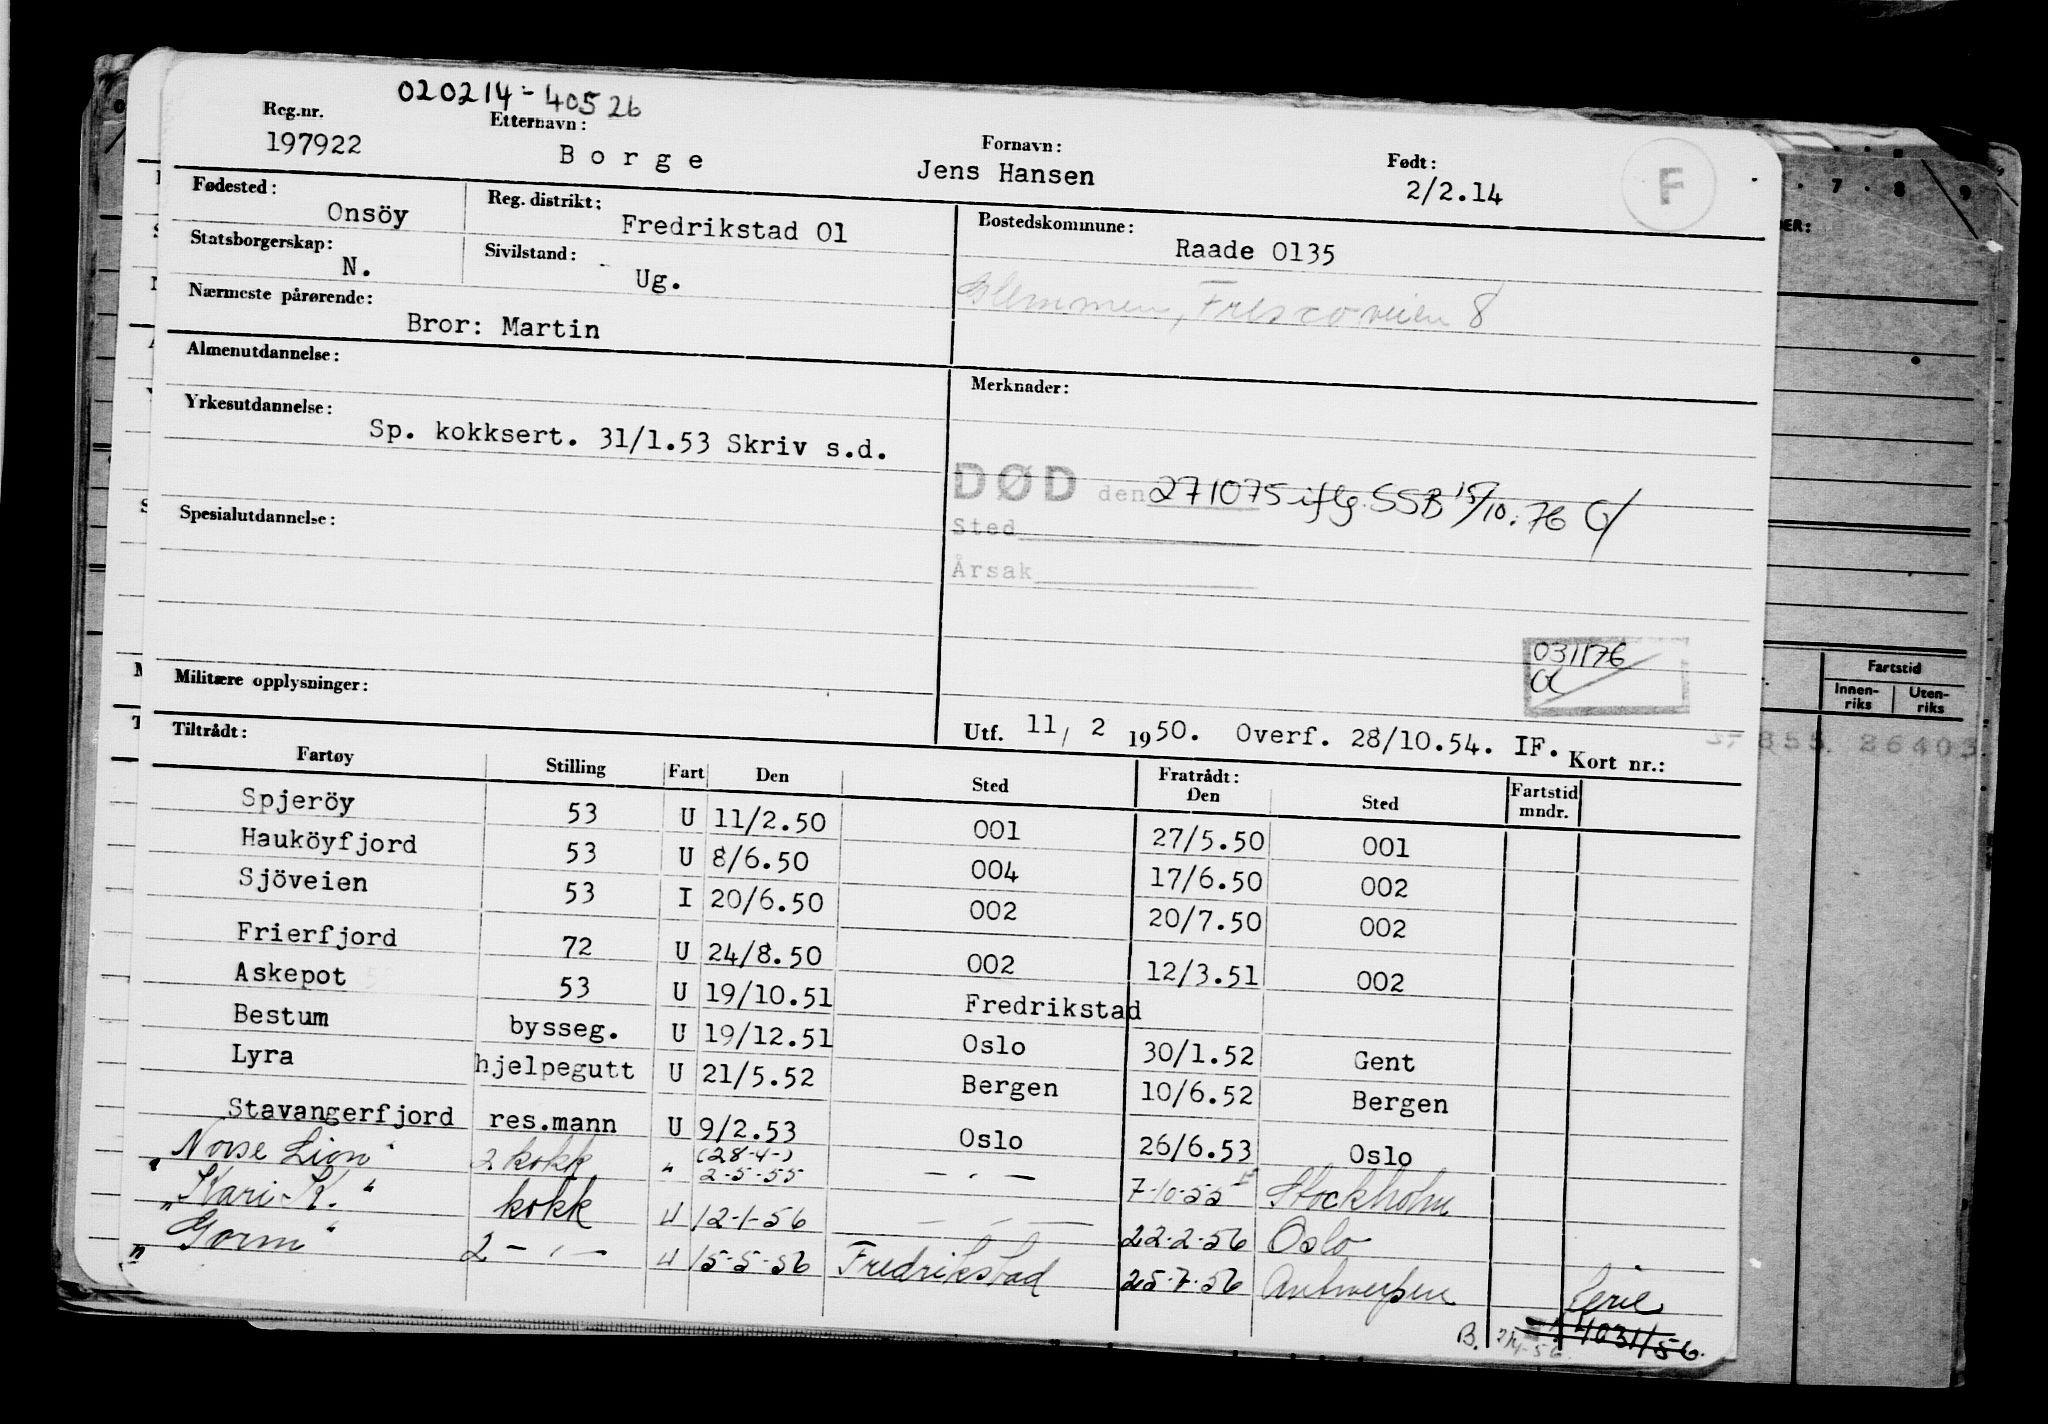 020214-40526
Reg.nr. Etternavn: Fornavn: Født:
197922 Borge Jens Hansen 2/2.14 F
Fødested: Reg. distrikt: Bostedskommune:
Onsöy Fredrikstad 01 Raade 0135
Statsborgerskap: Sivilstand:
N. Ug.
Glemmen, Frescoveien 8
Nærmeste pårørende:
Bror: Martin
Almenutdannelse: Merknader:
Yrkesutdannelse:
Sp. kokksert. 31/1.53 Skriv s.d.
DØD den 271075 iflg. SSB 15/10.76
Sted
Årsak
Spesialutdannelse:
031176
Militære opplysninger:
Utf. 11/ 2 1950. Overf. 28/10.54. IF. Kort nr.:
Tiltrådt: Fratrådt:
Fartøy Stilling Fart Den Sted Den Sted Fartstid mndr.
Spjeröy 53 U 11/2.50 001 27/5.50 001
Hauköyfjord 53 U 8/6.50 004 17/6.50 002
Sjöveien 53 I 20/6.50 002 20/7.50 002
Frierfjord 72 U 24/8.50 002 12/3.51 002
Askepot 53 U 19/10.51 Fredrikstad
Bestum bysseg. U 19/12.51 Oslo 30/1.52 Gent
Lyra hjelpegutt U 21/5.52 Bergen 10/6.52 Bergen
Stavangerfjord res.mann U 9/2.53 Oslo 26/6.53 Oslo
"Norse Lion" 2 kokk " (28-4-) 2-5-55 — " — 7-10-55 Stockholm
"Kari-K." kokk U 12-1-56 — " — 22-2-56 Oslo
"Gorm" 2 — " — U 15-5-56 Fredrikstad 25-7-56 Antwerpen
B.
4031/56
7 8 9
Fartstid
Innen-riks Uten-riks